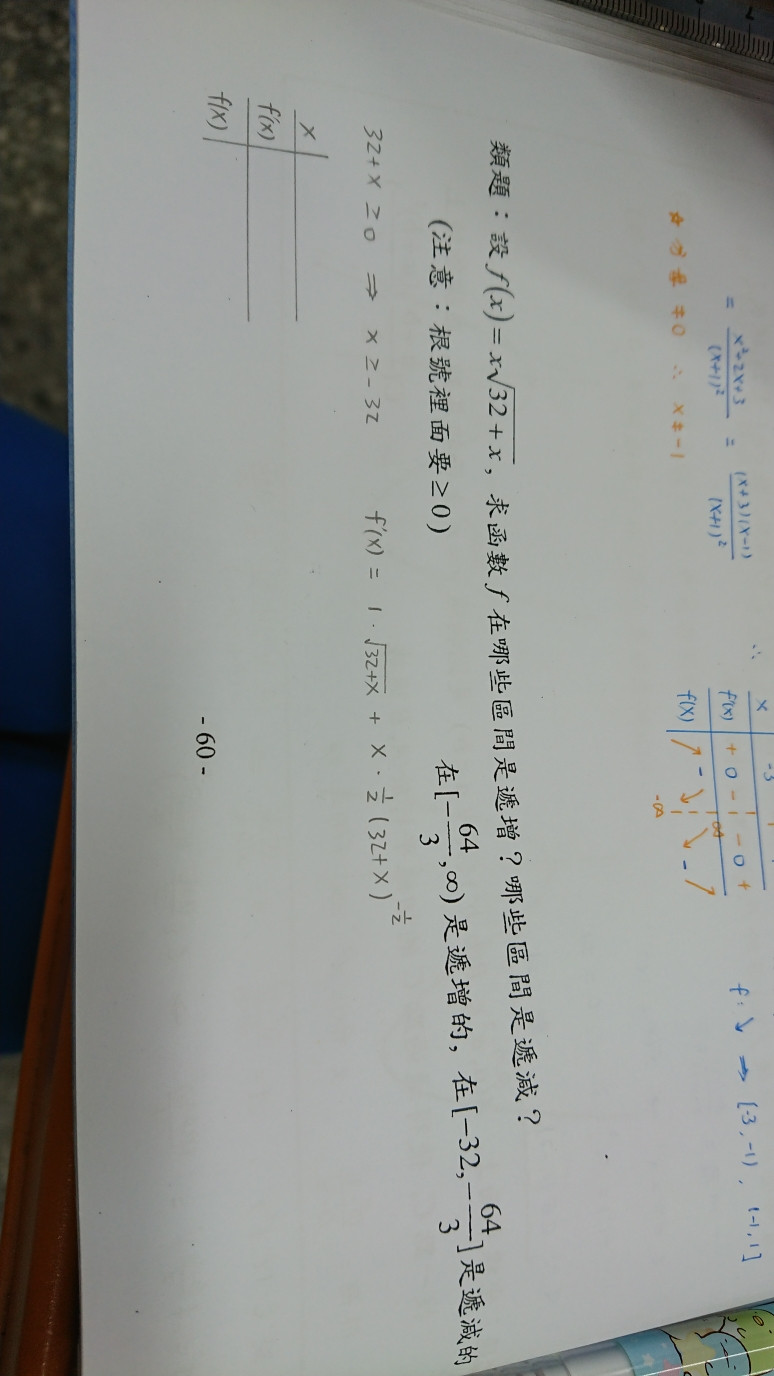 = x²+2x+3 / (x+1)² = (x+3)(x-1) / (x+1)²
∴
x -3
f'(x) + 0 - - 0 +
f(x) ↗ - ↘ ↘ - ↗
-∞ ∞
f: ↘ ⇒ [-3,-1), (-1,1]
☆ 分母 ≠0 ∴ x≠-1
類題：設 f(x)=x√(32+x)，求函數 f 在哪些區間是遞增？哪些區間是遞減？
(注意：根號裡面要≥0)
在[-64/3,∞) 是遞增的，在[-32,-64/3]是遞減的
32+x ≥0 ⇒ x ≥ -32 f'(x) = 1·√(32+x) + x·½(32+x)^(-½)
x
f'(x)
f(x)
- 60 -